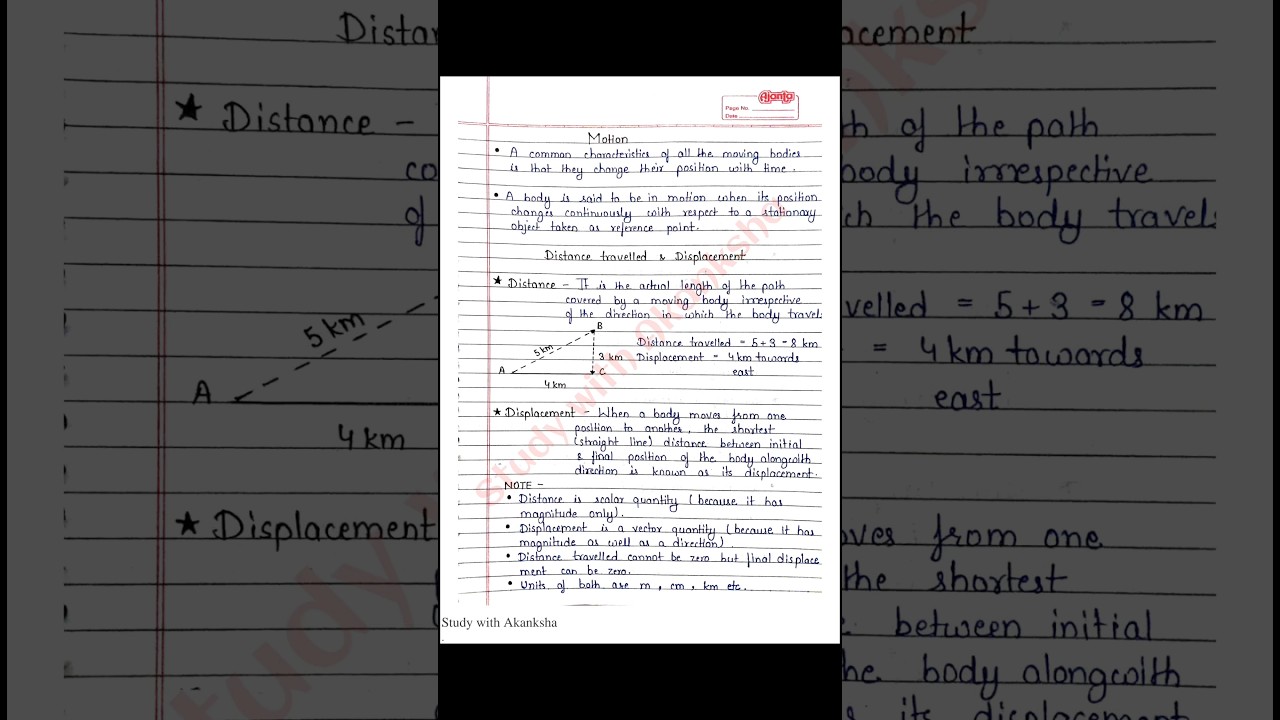 Ajanta
Page No.
Date
Motion
• A common characteristics of all the moving bodies
is that they change their position with time.
• A body is said to be in motion when its position
changes continuously with respect to a stationary
object taken as reference point.
Distance travelled & Displacement
★ Distance - It is the actual length of the path
covered by a moving body irrespective
of the direction in which the body travels
B
5 km
3 km
A
C
4 km
Distance travelled = 5+3 = 8 km
Displacement = 4 km towards
east
★ Displacement - When a body moves from one
position to another, the shortest
(straight line) distance between initial
& final position of the body alongwith
direction is known as its displacement.
NOTE -
• Distance is scalar quantity (because it has
magnitude only).
• Displacement is a vector quantity (because it has
magnitude as well as a direction)
• Distance travelled cannot be zero but final displace
ment can be zero.
• Units of both are m, cm, km etc.
study with akanksha
Study with Akanksha
★ Distance -
th of the path
co
body irrespective
of
ch the body travels
5 km
velled = 5+3 = 8 km
= 4 km towards
A
east
4 km
★ Displacement
oves from one
the shortest
between initial
he body alongwith
its displacement